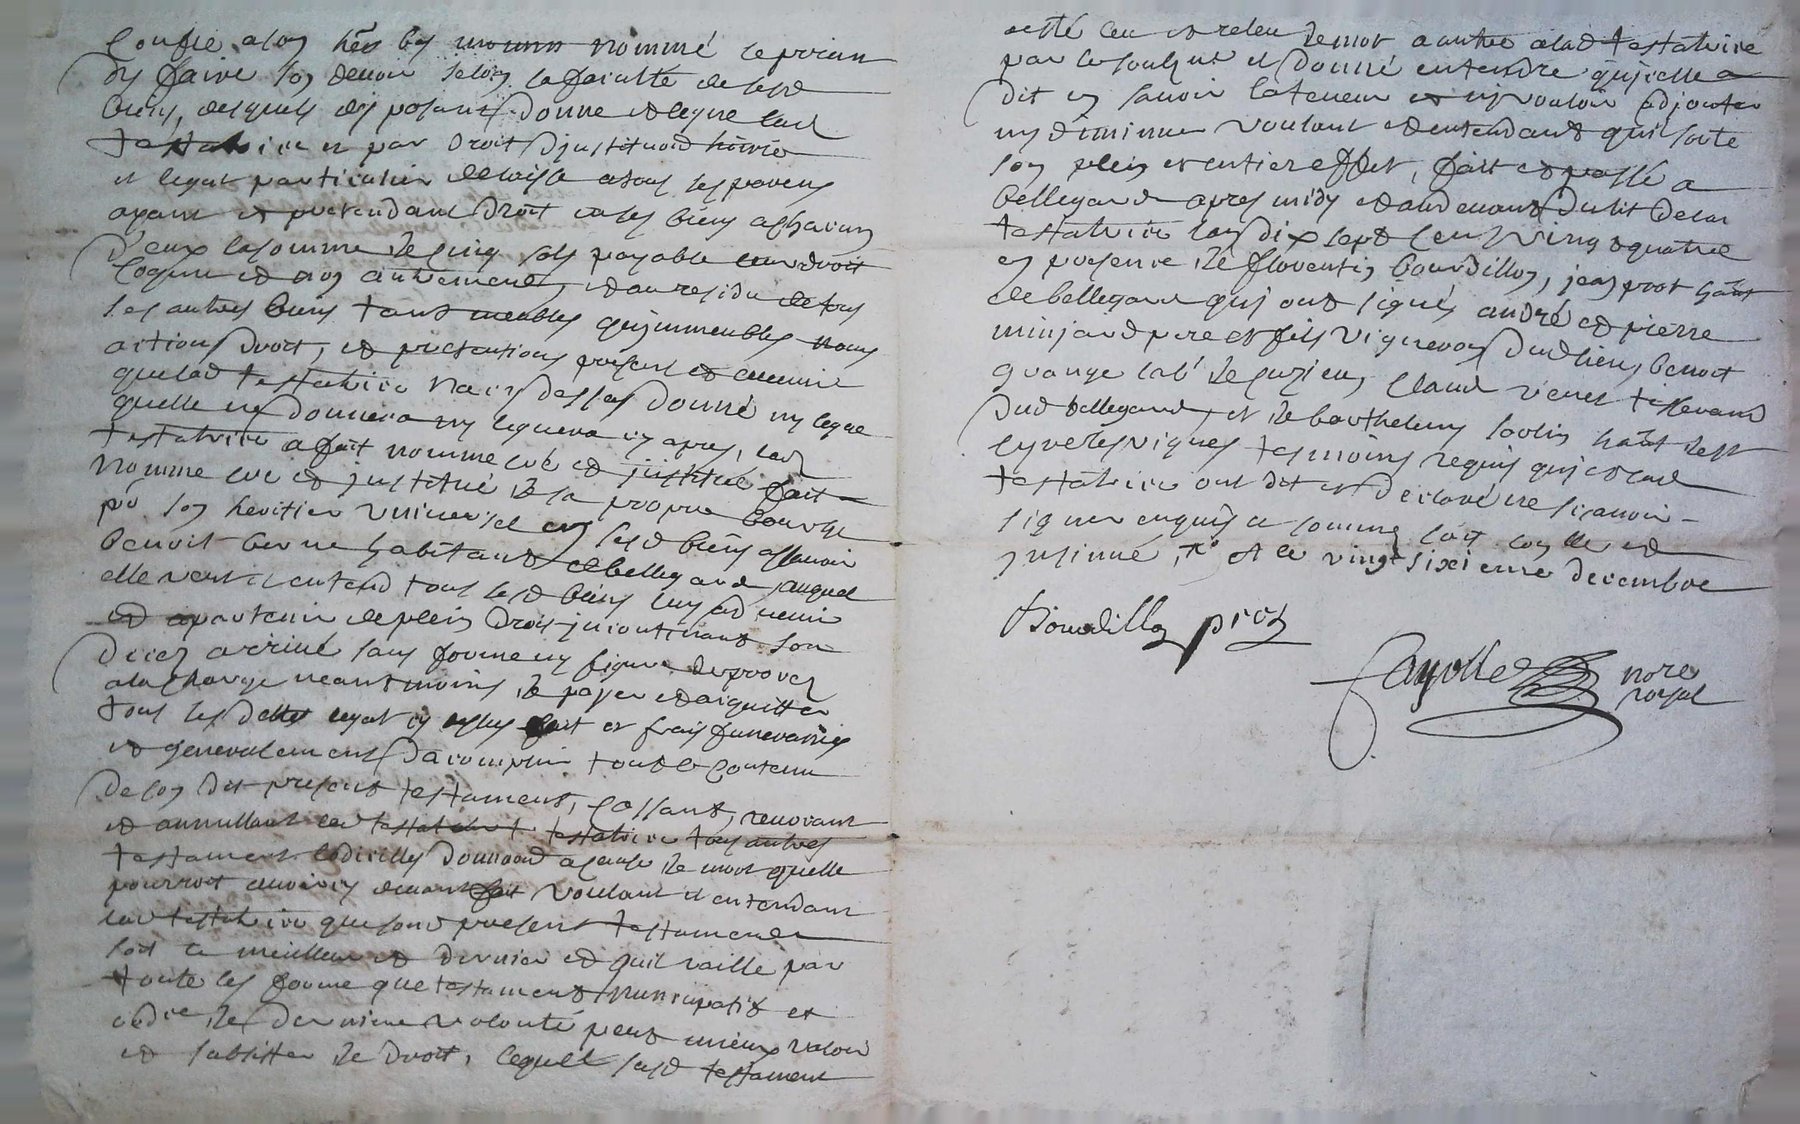 confie a son hers bas nommé le priant
dy faire son devoir selon la faculté de sesd
biens, desquels disposant donne et legue lad
testatrice et par droit djnstituon hérre
et legat particulier delaisse a tous les parens
ayant et pretendant droit en ses biens a chacun
d'eux la somme de cinq sols payable leur droit
cognu et non autrement, et au residu de tous
ses autres biens tant meubles qujmmeubles noms
actions droit, et pretentions present et avenir
que lad testatrice na cy dessus donné ny legue
quelle ny donnera ny leguera cy apres, lad
testatrice a fait nomme cré et jnstitué fait
nomme cré et jnstitué de sa propre bouche
pr son heritier universel en sesd biens assavoir
benoit berne habitant de bellegarde auquel
elle veut et entend tous sesd biens luy advenir
et apartenir de plein droit jncontinant son
deces arrivé sans forme ny figure de proces
a la charge neantmoins de payer et aquitter
tous ses dettes legat cy dessus fait et frais funeraires
et generalement d'acomplir tout le contenu
de son dit present testament, cassant, revocant
et annullant lad testatrice tous autres
testament codicilles donnaon a cause de mort quelle
pourroit avoir cy devant fait voulant et entendant
lad testatrice que sond present testament
soit le meilleur et dernier et quil vaille par
toute les forme que testament nuncupatif et
ordre de derniere volonté peut mieux valoir
et subsister de droit, lequel susd testament
a esté leu et releu de mot a autre a lad testatrice
par le soubzne et donné entendre qujcelle a
dit en savoir la teneur et ny vouloir adjouter
ny diminuer voulant et entendant quil sorte
son plein et entier effet, fait et passé a
bellegarde apres midy et au devant du lit de lad
testatrice lan dix sept cent vingt quatre
en presence de florentin bourdillon, jean prot habt
de bellegarde quj ont signés andré et pierre
minjard pere et fils vignerons dud lieu, benoit
grange labr de cuzieu, claude vienet tisserand
dud bellegarde, et de barthelemy soolin habt de st
cyre les vignes tesmoins requis quj et lad
testatrice ont dit et declaré ne scavoir
signer enquis et sommés soit conllé et
jnsinué, ce vingt sixieme decembre
Bourdillon prot
fayolle nore
royal